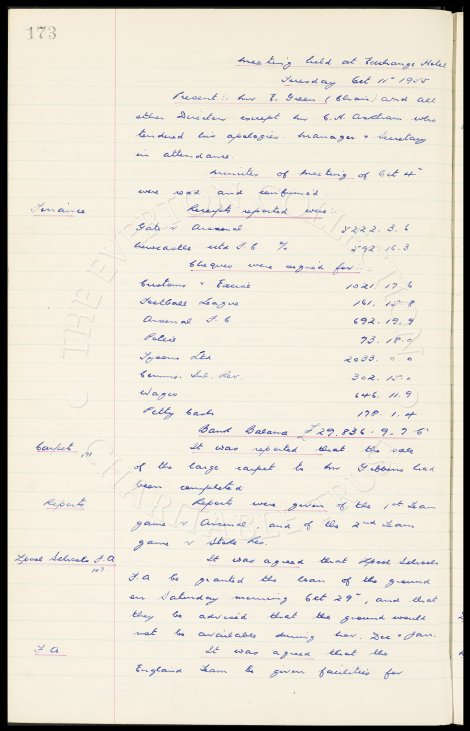 173
Meeting held at Exchange Hotel
Tuesday Oct 11th 1955
Present:- Mr E. Green (Chair) and all
other Directors except Mr C. H. Askham who
tendered his apologies. Manager & Secretary
in attendance.
Minutes of Meeting of Oct 4th
were read and confirmed.
Finance Receipts reported were:-
Gate v Arsenal 5222. 3. 6
Newcastle Utd F.C % 592. 16. 3
Cheques were signed for:-
Customs & Excise 1021. 17. 6
Football League 161. 12. 8
Arsenal F.C 692. 19. 9
Police 73. 18. 0
Tysons Ltd 2033. 0. 0
Comms. Inl. Rev. 302. 15. 0
Wages 646. 11. 9
Petty Cash 178. 1. 4
Bank Balance £29,836. 9. 7. 6
Carpet 171 It was reported that the sale
of the large carpet to Mr Gibbins had
been completed
Reports Reports were given of the 1st Team
game v Arsenal, and of the 2nd Team
game v Stoke Res.
Lpool Schools F.A It was agreed that Lpool Schools
107. F.A be granted the loan of the ground
on Saturday morning Oct 29th, and that
they be advised that the ground would
not be available during Nov. Dec & Jan.
F.A It was agreed that the
England Team be given facilities for
THE EVERTON COLLECTION
CHARITABLE TRUST
©